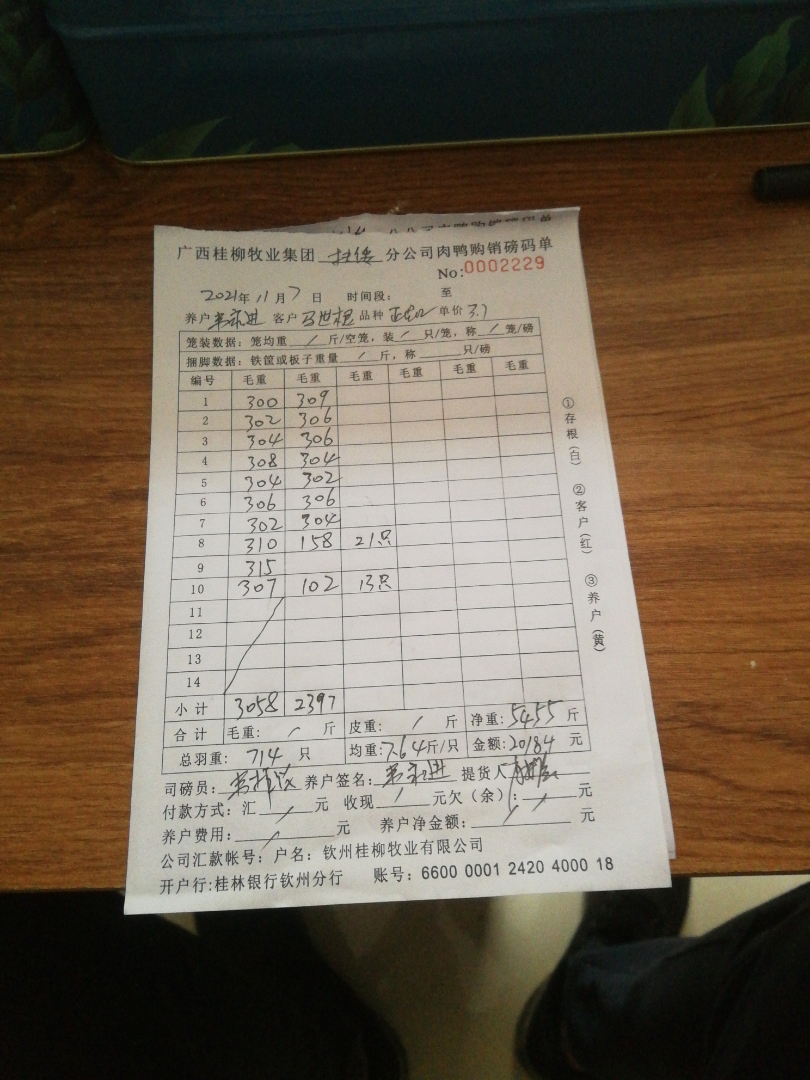 广西桂柳牧业集团 分公司肉鸭购销磅码单
No:0002229
2021年11月7日 时间段: 至
养户 客户 马世根 品种 单价 3.7
笼装数据: 笼均重 / 斤/空笼, 装 / 只/笼, 称 / 笼/磅
捆脚数据: 铁筐或板子重量 / 斤, 称 只/磅
编号 毛重 毛重 毛重 毛重 毛重 毛重
1 300 309
2 302 306
3 304 306
4 308 304
5 304 302
6 306 306
7 302 304
8 310 158 21只
9 315
10 307 102 13只
11
12
13
14
小计 3058 2397
合计 毛重: / 斤 皮重: / 斤 净重: 5455 斤
总羽重: 714 只 均重: 7.64斤/只 金额: 20184 元
司磅员: 养户签名: 提货人
付款方式: 汇 / 元 收现 / 元欠(余): / 元
养户费用: / 元 养户净金额: / 元
公司汇款帐号: 户名: 钦州桂柳牧业有限公司
开户行:桂林银行钦州分行 账号: 6600 0001 2420 4000 18
①存根(白) ②客户(红) ③养户(黄)